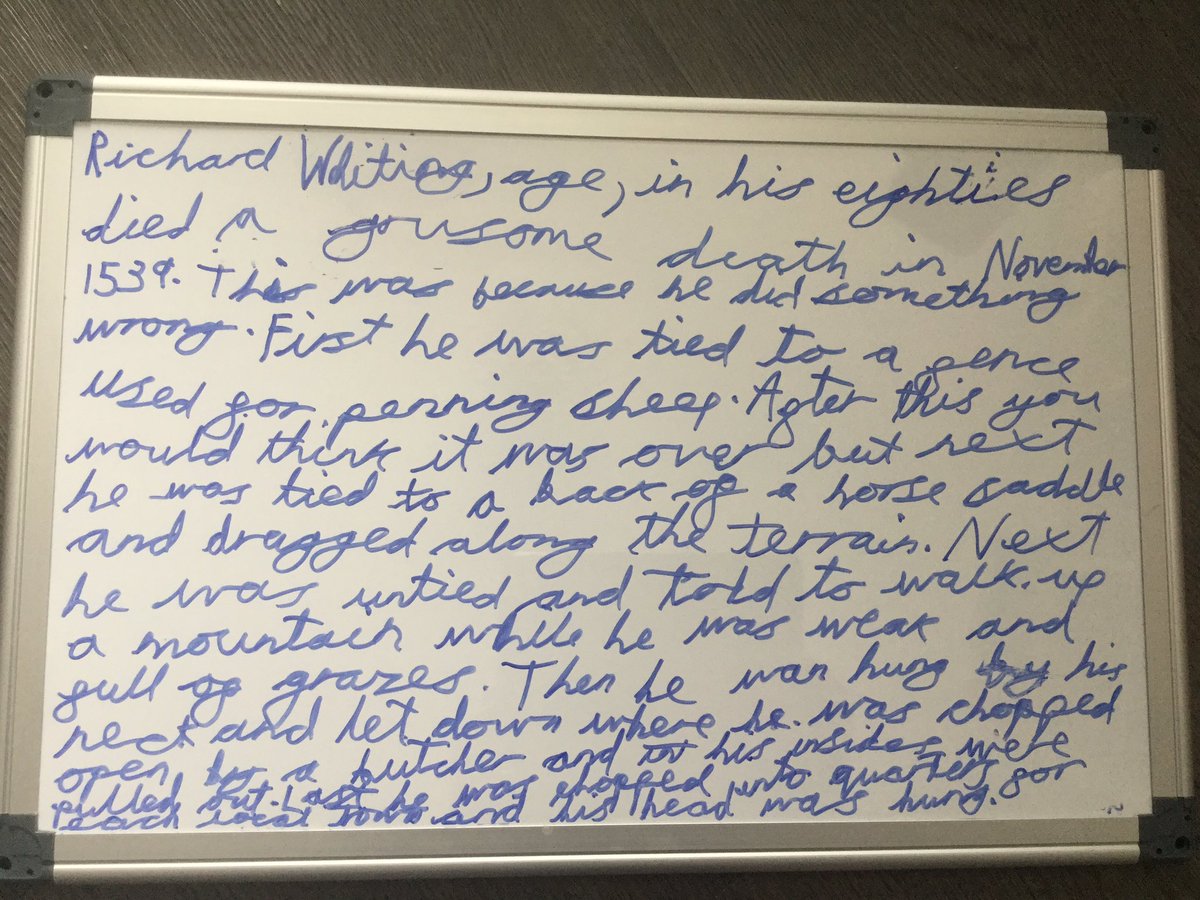 Richard Whiting, age, in his eighties
died a grusome death in November
1539. This was because he did something
wrong. First he was tied to a fence
used for penning sheep. After this you
would think it was over but next
he was tied to a back of a horse saddle
and dragged along the terrain. Next
he was untied and told to walk up
a mountain while he was weak and
full of grazes. Then he was hung by his
neck and let down where he was chopped
open by a butcher and his insides were
pulled out. Last he was chopped into quarters for
each local town and his head was hung.